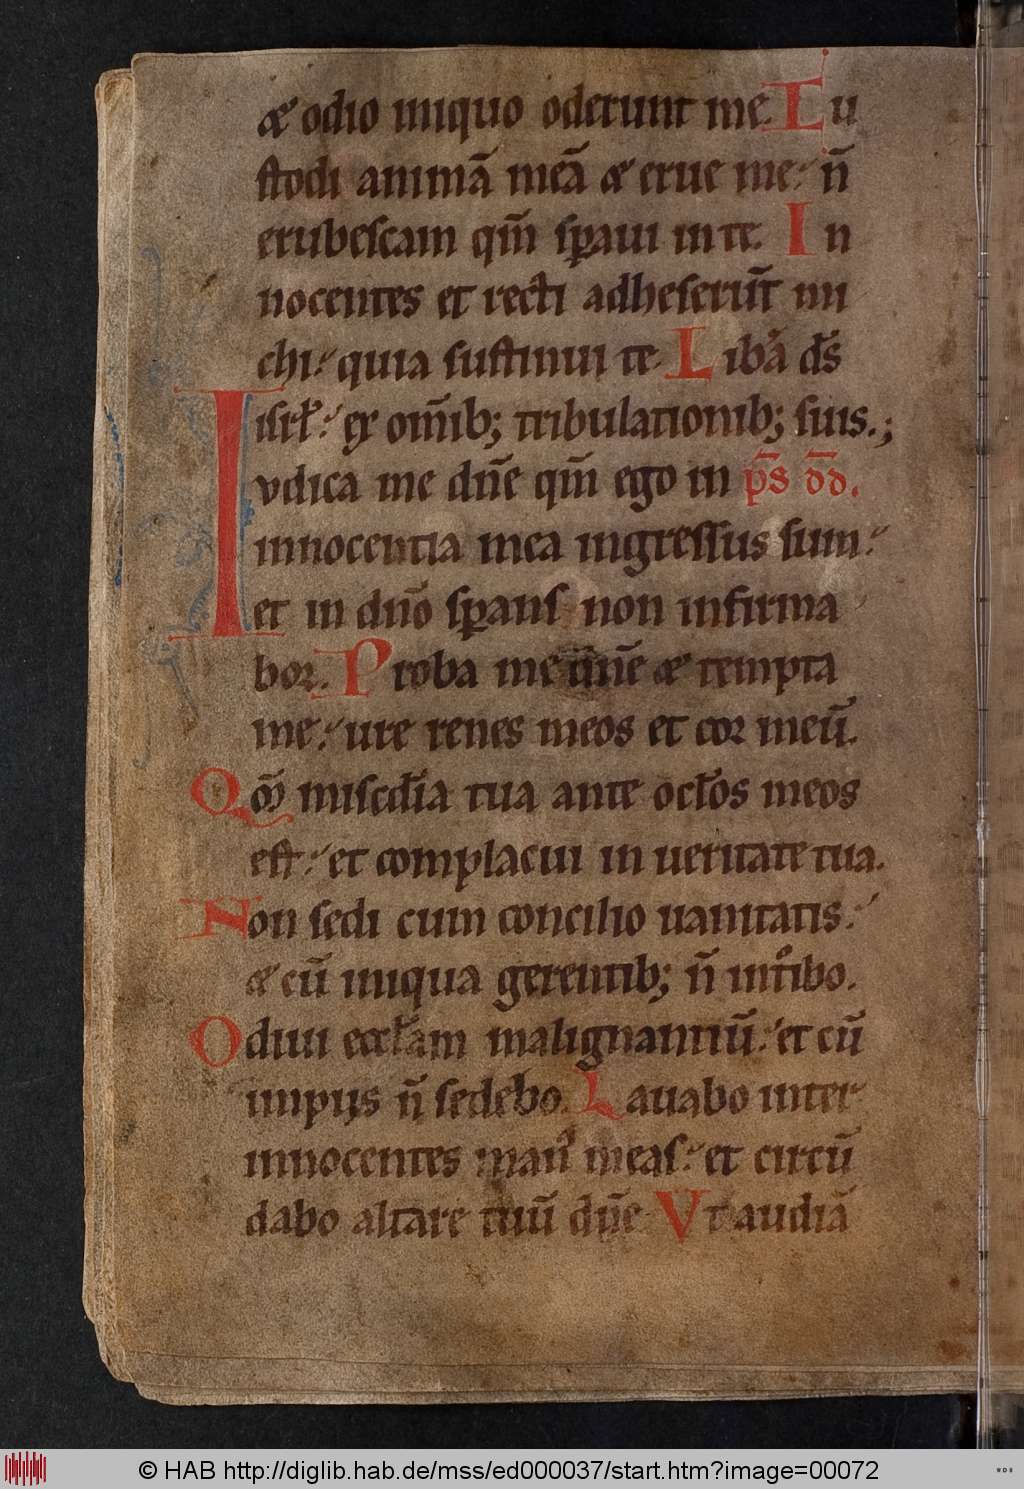 & odio iniquo oderunt me. Cu
stodi animā meā & erue me: n̄
erubescam qm̄ spaui in te. In
nocentes et recti adheserūt mi
chi: quia sustinui te. Libᵃ ds̄
isrł: ex om̄ib; tribulationib; suis.;
Iudica me dn̄e qm̄ ego in ps̄ dd̄.
innocentia mea ingressus sum:
et in dn̄o spans non infirma
bor. Proba me dn̄e & tempta
me: ure renes meos et cor meū.
Qm̄ miscd̄ia tua ante ocłos meos
est: et complacui in ueritate tua.
Non sedi cum concilio uanitatis:
& cū iniqua gerentib; n̄ introibo.
Odiui eccłam malignantiū: et cū
impijs n̄ sedebo. Lauabo inter
innocentes man᷒ meas: et circū
dabo altare tuū dn̄e Vt audiā
© HAB http://diglib.hab.de/mss/ed000037/start.htm?image=00072